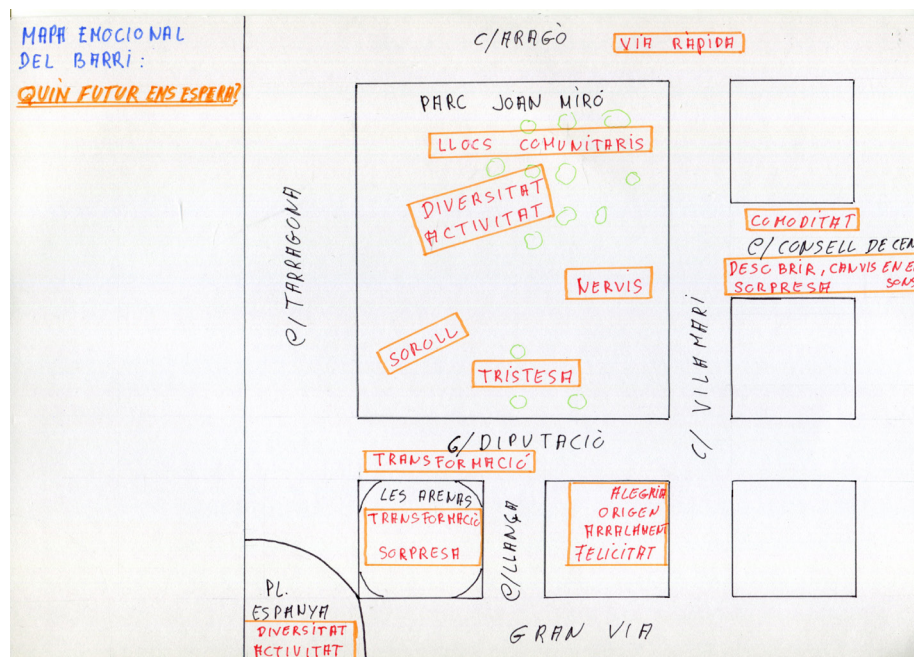 MAPA EMOCIONAL
DEL BARRI:
QUIN FUTUR ENS ESPERA?
C/ARAGÒ
VIA RÀPIDA
PARC JOAN MIRÓ
LLOCS COMUNITARIS
DIVERSITAT
ACTIVITAT
C/TARRAGONA
NERVIS
SOROLL
TRISTESA
COMODITAT
C/CONSELL DE CEN
DESCOBRIR, CANVIS EN E
SORPRESA SONS
C/ VILAMARÍ
C/DIPUTACIÒ
TRANSFORMACIÓ
LES ARENAS
TRANSFORMACIÓ
SORPRESA
C/LLANÇA
ALEGRIA
ORIGEN
ARRALAMENT
FELICITAT
PL.
ESPANYA
DIVERSITAT
ACTIVITAT
GRAN VIA